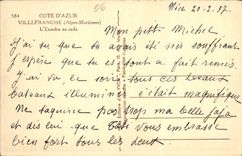 584
06
COTE D'AZUR
VILLEFRANCHE (Alpes-Maritimes)
L'Escadre en rade
Nice 20-2-37.
Mon petit Michel
J'ai vu que tu avais été souffrant
J'espère que tu es tout à fait remis.
J'ai vu, ce soir tous ces beaux
bateaux illuminés c'était magnifique
Ne taquine pas trop ma belle
et dis lui que Vous embrasse
bien fort tous les deux.